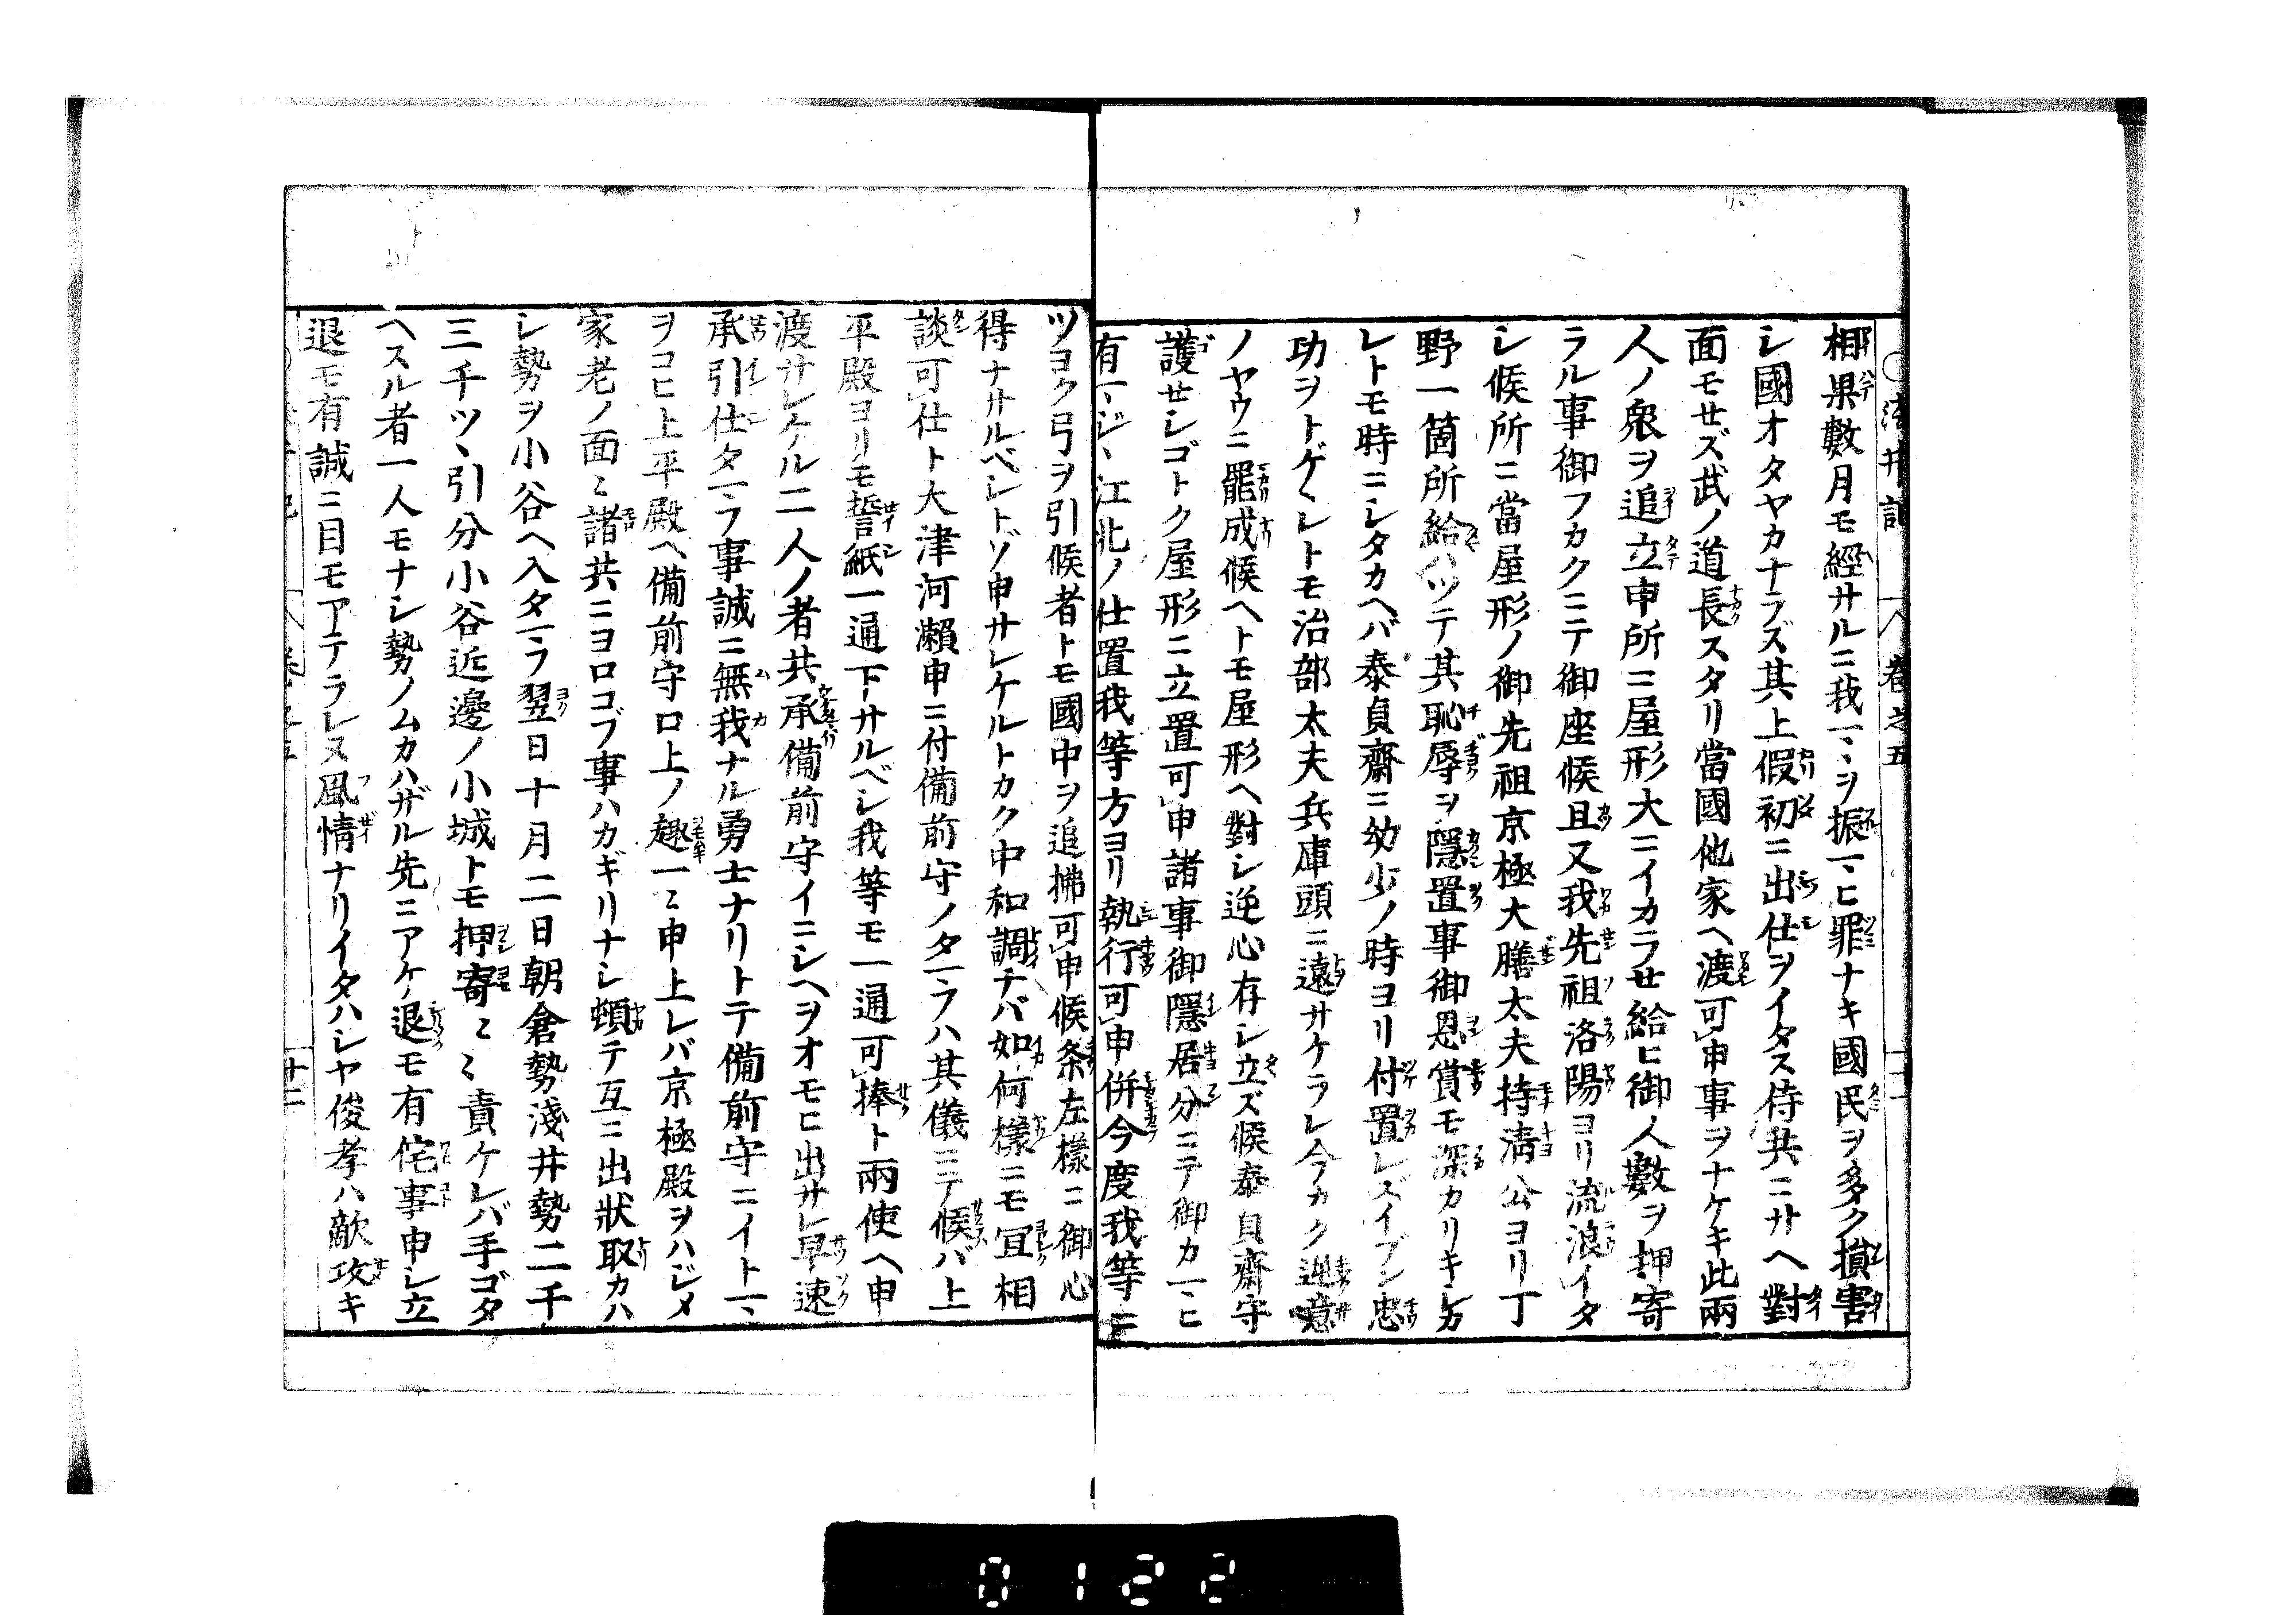 淺井記 卷之五 十一
相果數月モ經サルニ我マヽヲ振マヒ罪ナキ國民ヲ多ク損害
シ國オタヤカナラズ其上假初ニ出仕ヲイタス侍共ニサヘ對
面モせズ武ノ道長スタリ當國他家ヘ渡可申事ヲナケキ此兩
人ノ衆ヲ追立申所ニ屋形大ニイカラせ給ヒ御人數ヲ押寄
ラル事御フカクニテ御座候且又我先祖洛陽ヨリ流浪イタ
シ候所ニ當屋形ノ御先祖京極大膳太夫持淸公ヨリ丁
野一箇所給ハツテ其恥辱ヲ隱置事御恩賞モ深カリキシカ
レトモ時ニシタカヘバ泰貞齋ニ幼少ノ時ヨリ付置レズイブン忠
功ヲトゲヽレトモ治部太夫兵庫頭ニ遠サケラレ今カク逆意
ノヤウニ罷成候ヘトモ屋形ヘ對シ逆心存シ立ズ候泰貞齋守
護せシゴトク屋形ニ立置可申諸事御隱居分ニテ御カマヒ
有マジヽ江北ノ仕置我等方ヨリ執行可申併今度我等ニ
ツヨク弓ヲ引候者トモ國中ヲ追拂可申候条左樣ニ御心
得ナサルベシトゾ申サレケルトカク中和調ナバ如何樣ニモ宜相
談可仕ト大津河瀨申ニ付備前守ノタマフハ其儀ニテ候バ上
平殿ヨリモ誓紙一通下サルベシ我等モ一通可捧ト兩使ヘ申
渡サレケル二人ノ者共承備前守イニシヘヲオモヒ出サレ早速
承引仕タマフ事誠ニ無我ナル勇士ナリトテ備前守ニイトマヽ
ヲコヒ上平殿ヘ備前守口上ノ趣一々申上レバ京極殿ヲハジメ
家老ノ面々諸共ニヨロコブ事ハカギリナシ頓テ互ニ出狀取カハ
シ勢ヲ小谷ヘ入タマフ翌日十月二日朝倉勢淺井勢二千
三千ツヽ引分小谷近邊ノ小城トモ押寄々々責ケレバ手ゴタ
ヘスル者一人モナシ勢ノムカハザル先ニアケ退モ有侘事申シ立
退モ有誠ニ目モアテラレヌ風情ナリイタハシヤ俊孝ハ敵攻キ
十二
0122